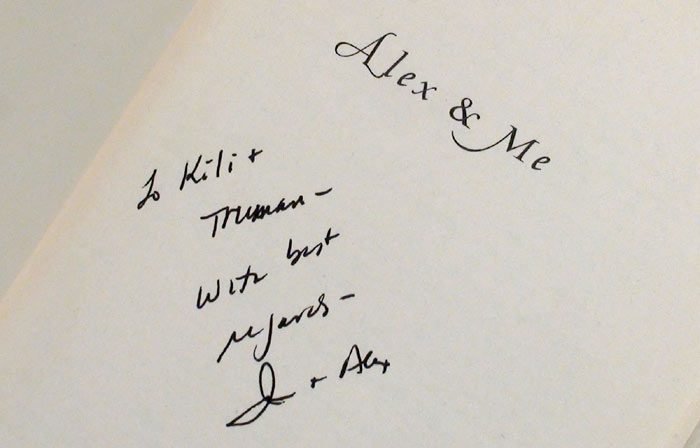 Alex & Me
To Kili +
Truman -
With best
regards -
+ Alex